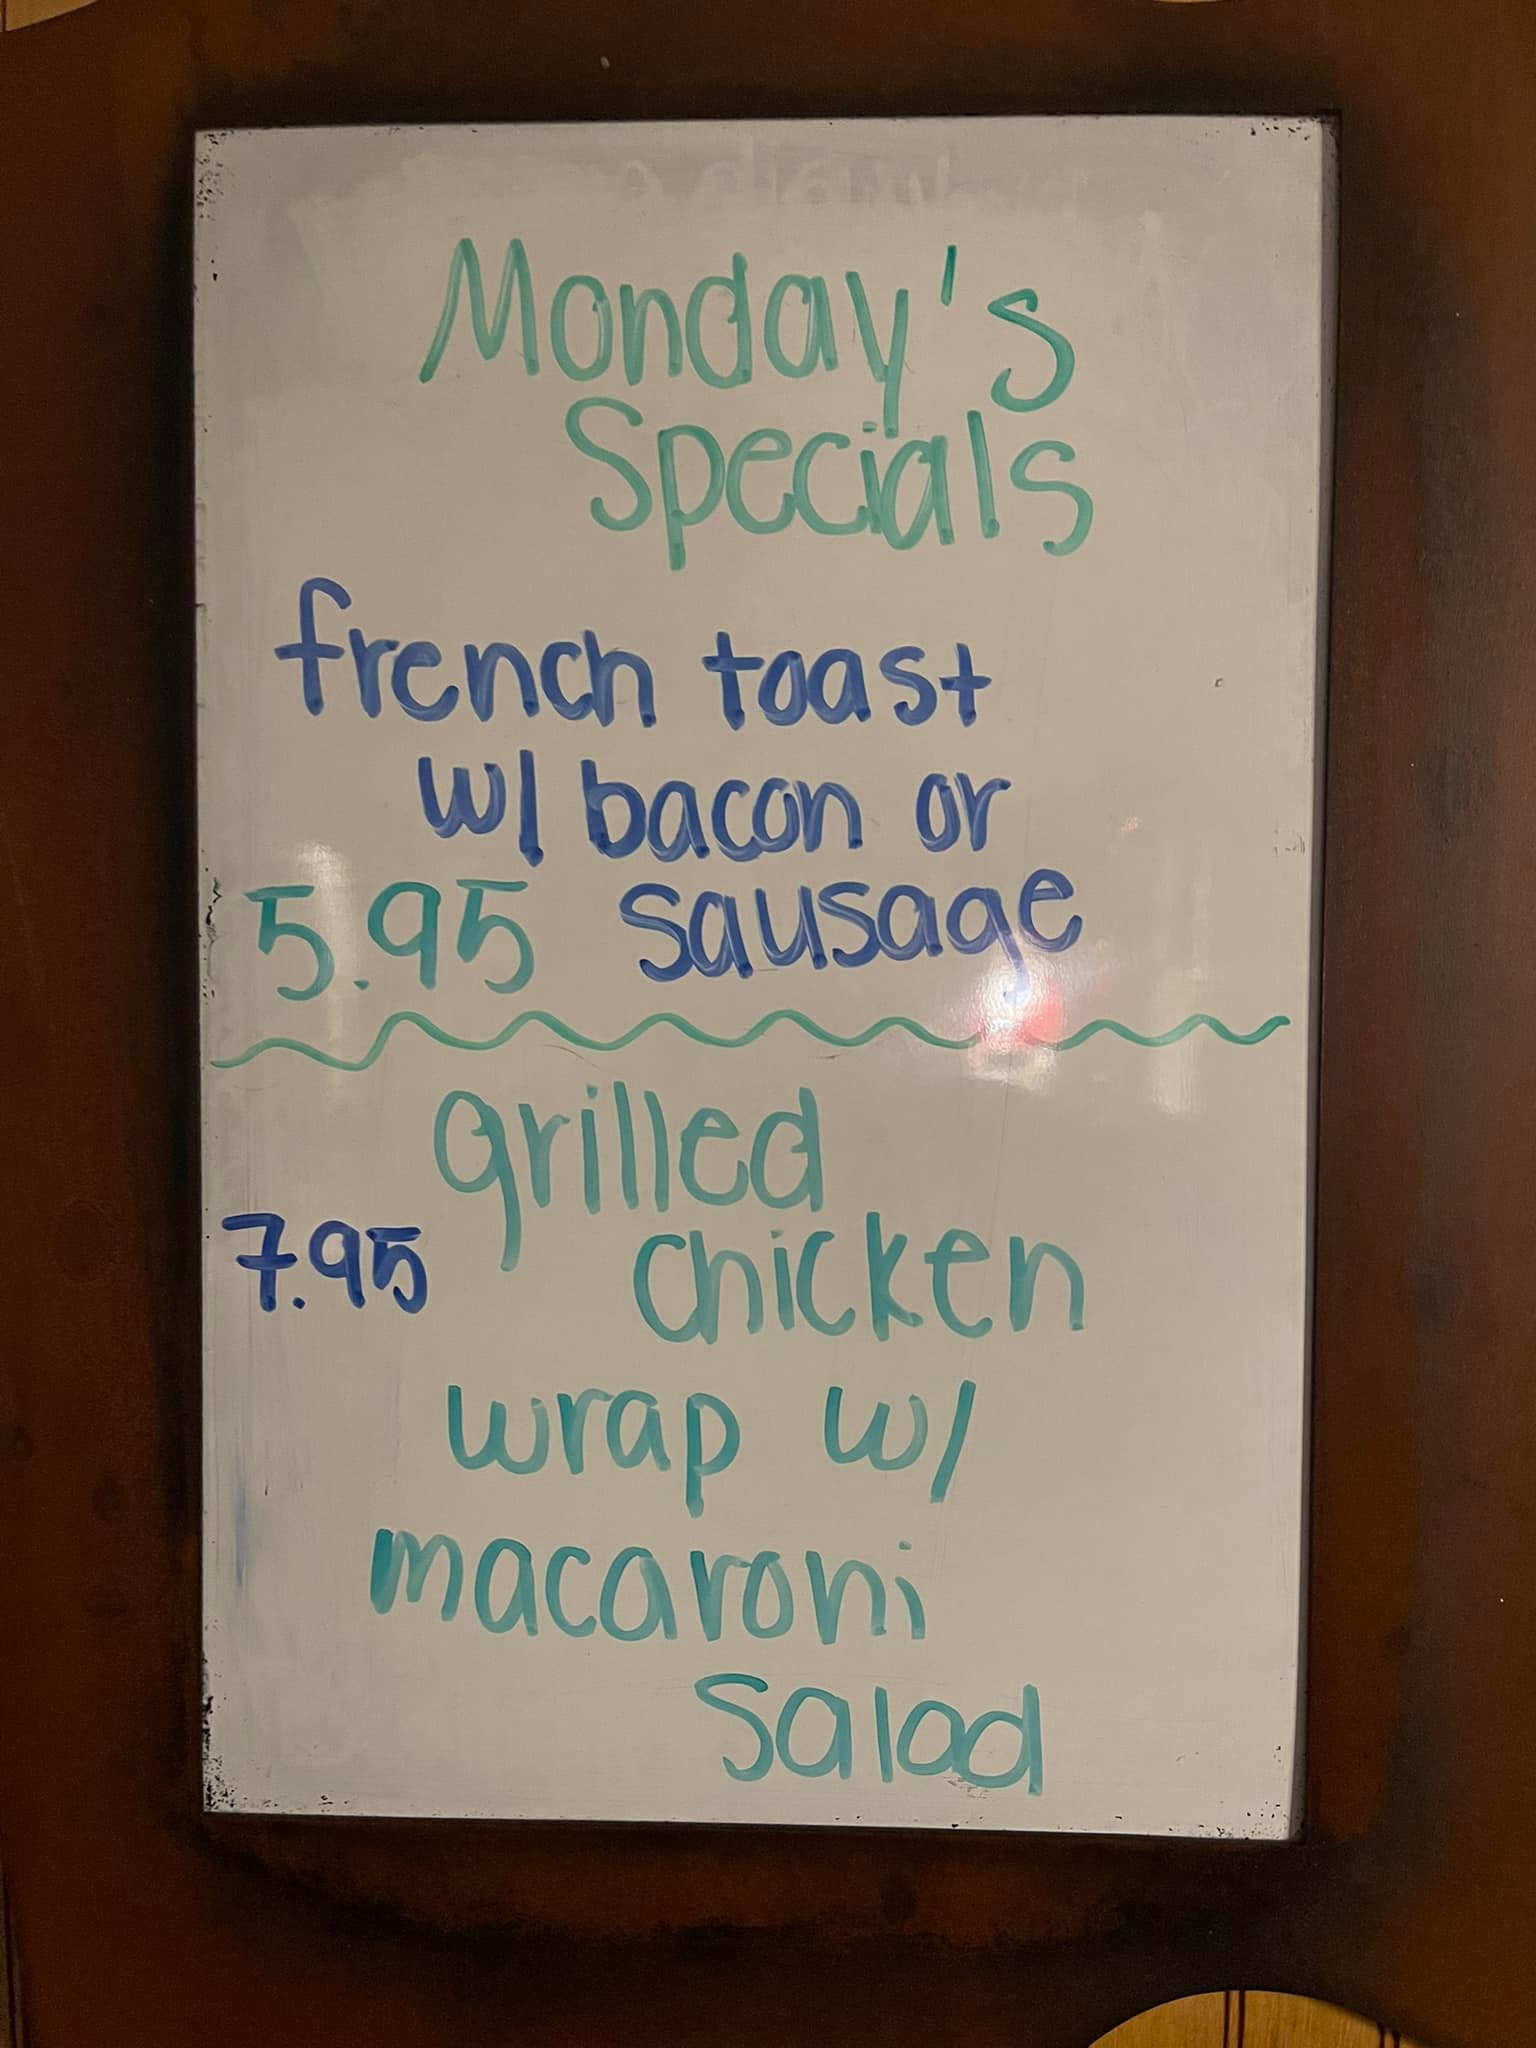 Monday's
Specials
french toast
w/ bacon or
5.95 sausage
grilled
7.95 chicken
wrap w/
macaroni
salad